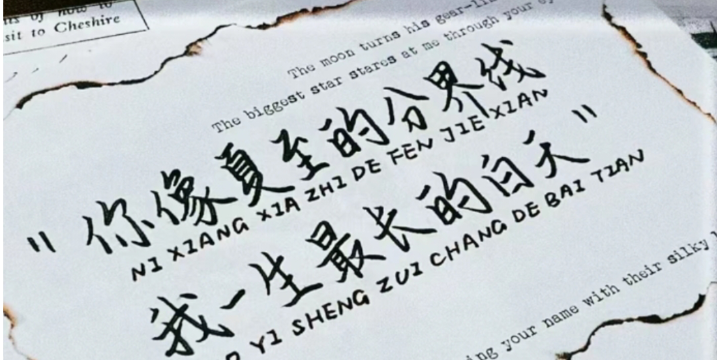 sit to Cheshire
The moon turns his
The biggest star stares at me through your
"你像夏至的分界线
NI XIANG XIA ZHI DE FEN JIE XIAN
我一生最长的白天"
YI SHENG ZUI CHANG DE BAI TIAN
your name with their silky